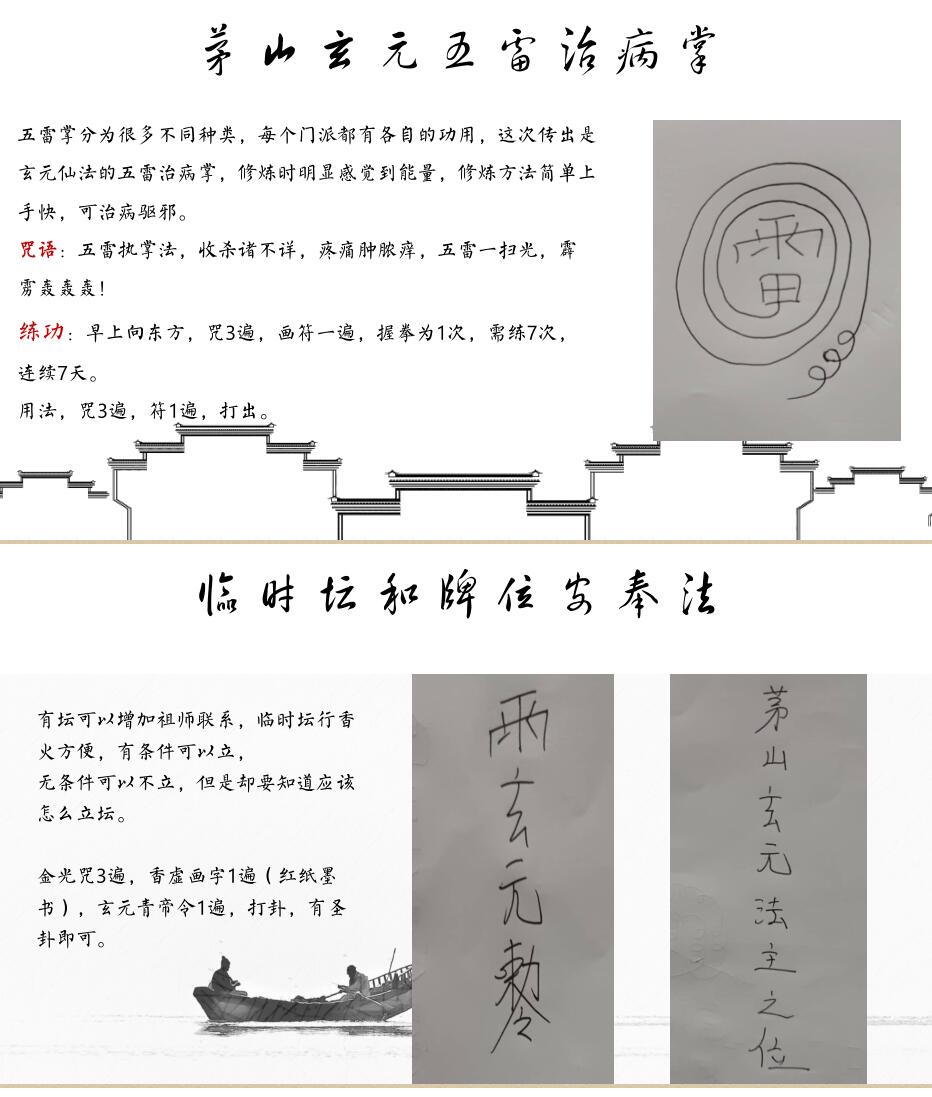 茅山玄元五雷治病掌
五雷掌分为很多不同种类，每个门派都有各自的功用，这次传出是
玄元仙法的五雷治病掌，修炼时明显感觉到能量，修炼方法简单上
手快，可治病驱邪。
咒语：五雷执掌法，收杀诸不详，疼痛肿脓痒，五雷一扫光，霹
雳轰轰轰！
练功：早上向东方，咒3遍，画符一遍，握拳为1次，需练7次，
连续7天。
用法，咒3遍，符1遍，打出。
雷
临时坛和牌位安奉法
有坛可以增加祖师联系，临时坛行香
火方便，有条件可以立，
无条件可以不立，但是却要知道应该
怎么立坛。
金光咒3遍，香虚画字1遍（红纸墨
书），玄元青帝令1遍，打卦，有圣
卦即可。
雨玄元勅令
茅山玄元法主之位